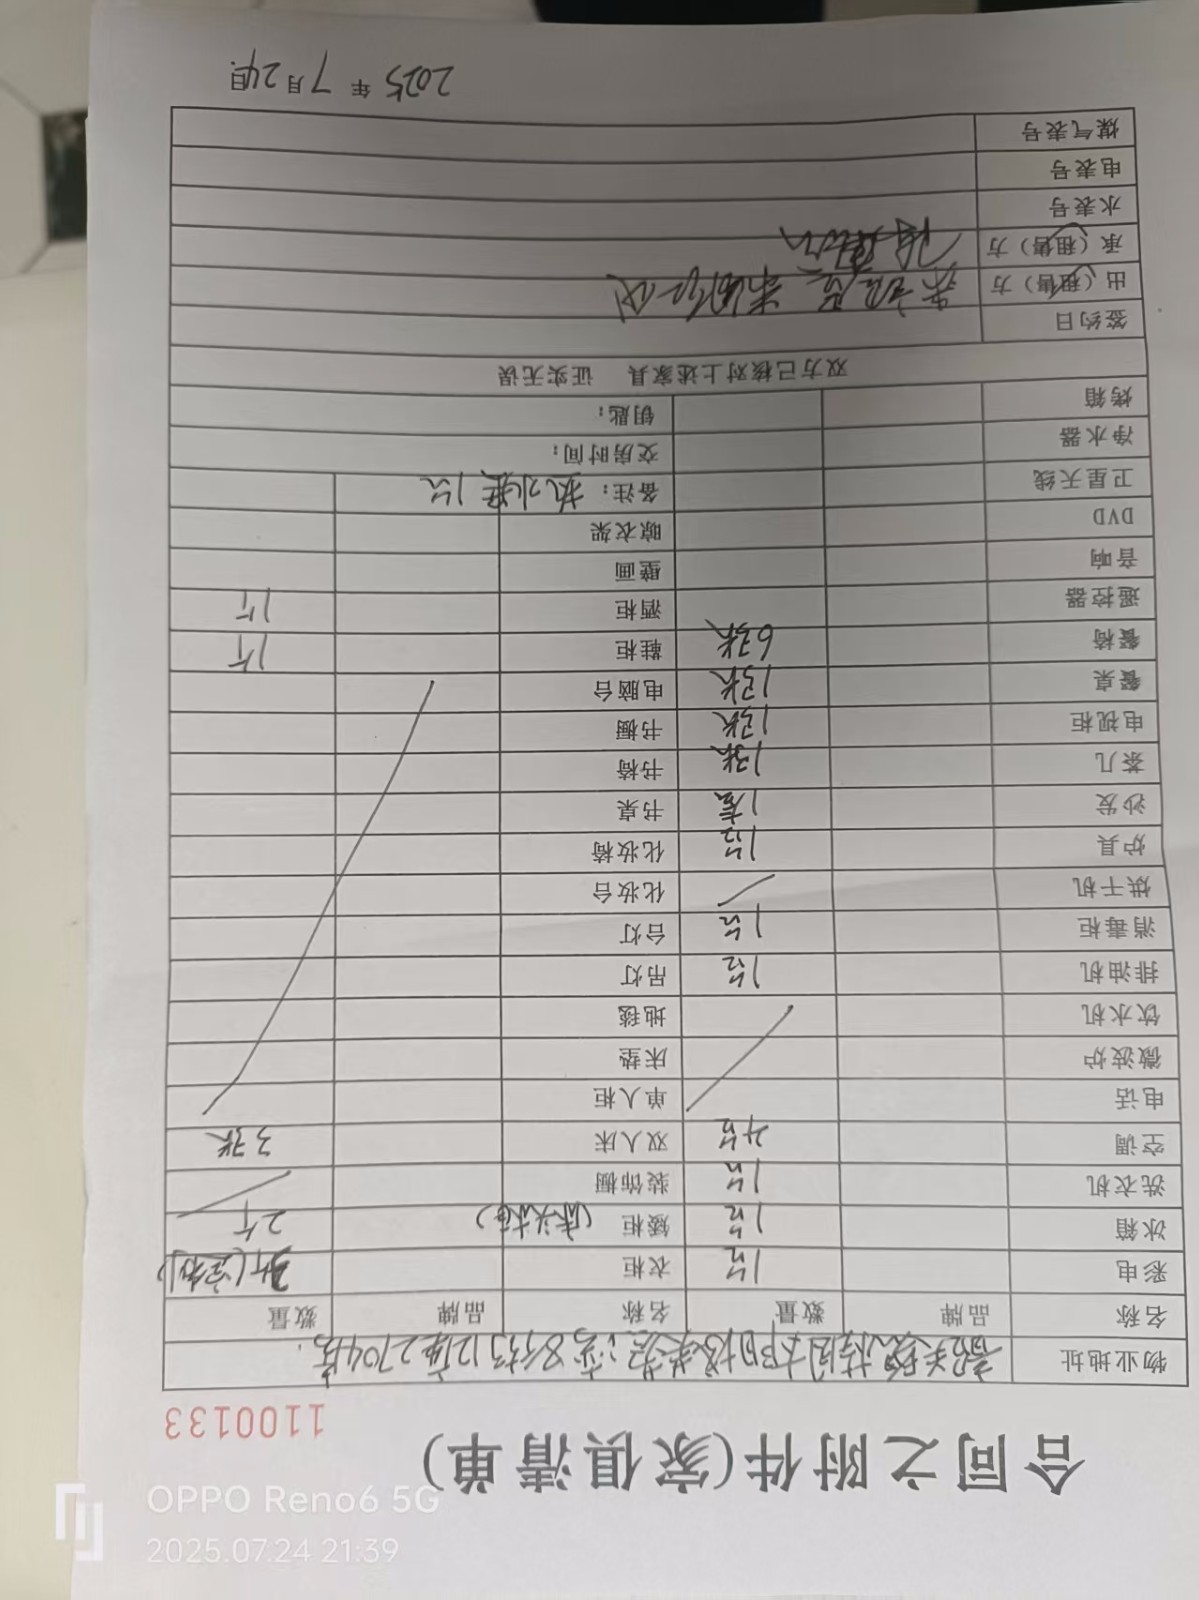 合同之附件(家俱清单)
1100133
物业地址 12座2704房.
名称 品牌 数量 名称 品牌 数量
彩电 1台 衣柜
冰箱 1台 矮柜 (床头柜) 2个
洗衣机 1台 装饰橱
空调 4台 双人床 3张
电话 单人柜
微波炉 床垫
饮水机 地毯
排油机 1台 吊灯
消毒柜 1台 台灯
烘干机 化妆台
炉具 1台 化妆椅
沙发 1套 书桌
茶几 1张 书椅
电视柜 1张 书橱
餐桌 1张 电脑台
餐椅 6张 鞋柜 1个
遥控器 酒柜 1个
音响 壁画
DVD 晾衣架
卫星天线 备注: 热水器1台
净水器 交房时间:
烤箱 钥匙:
双方已核对上述家具 证实无误
签约日
出(租售)方
承(租售)方
水表号
电表号
煤气表号
2025年7月24日
OPPO Reno6 5G
2025.07.24 21:39